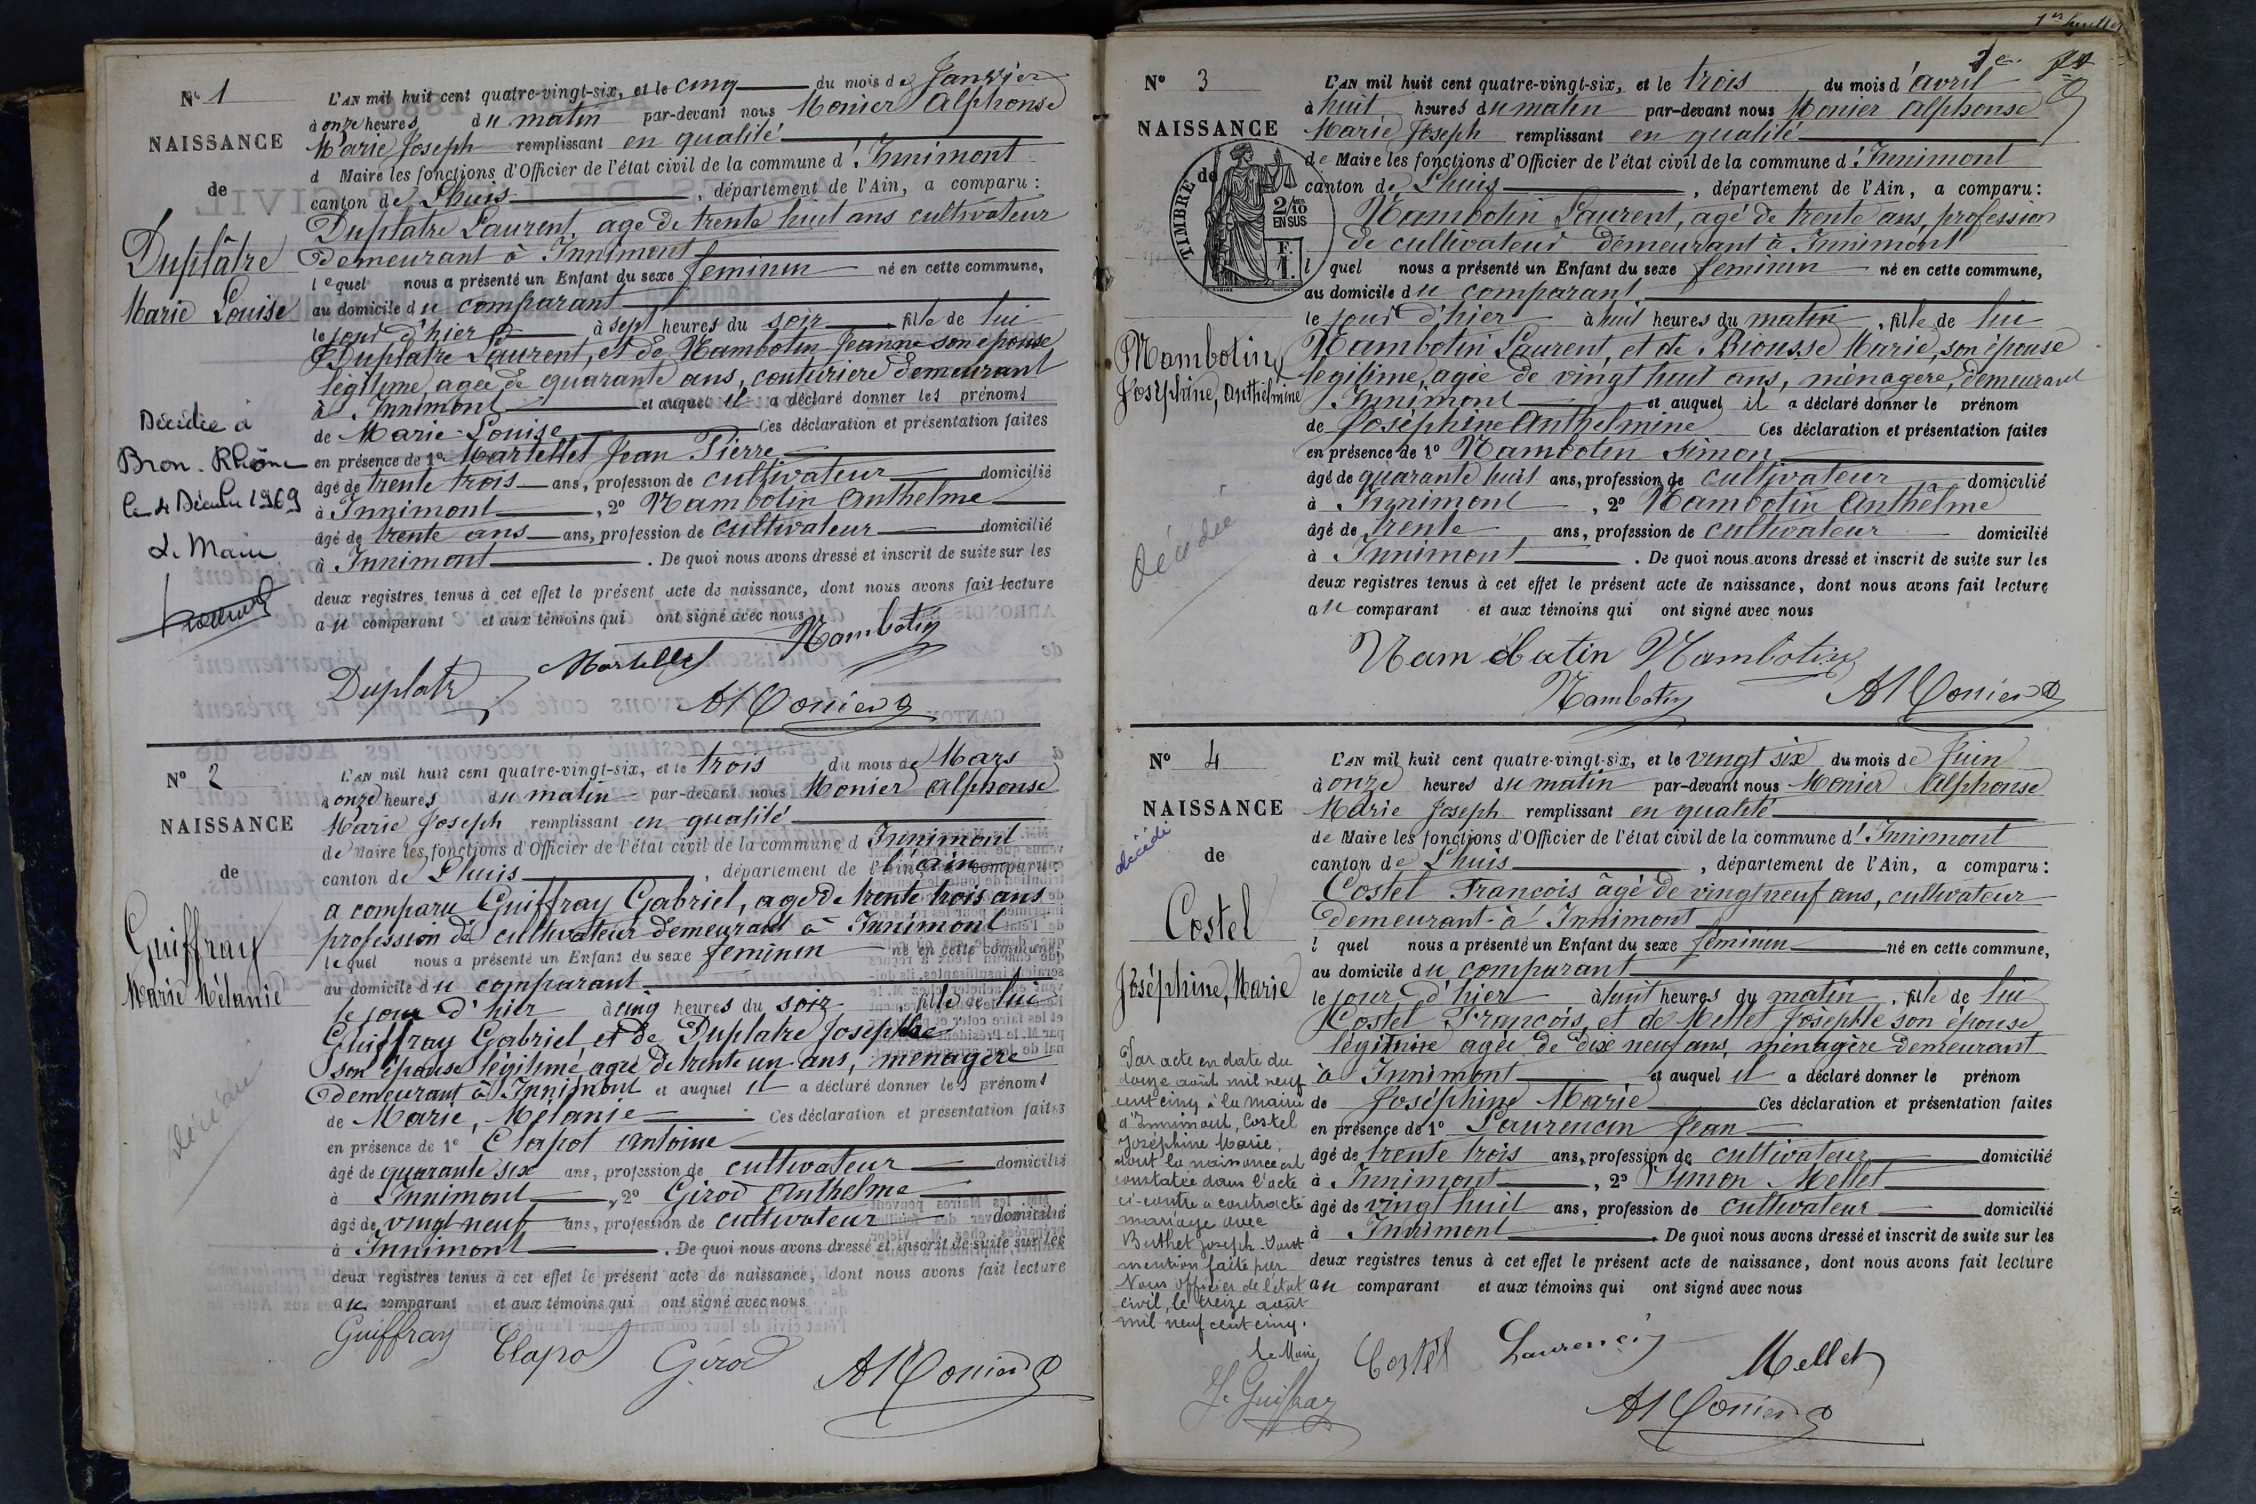 N° 1
NAISSANCE
de
Duplâtre
Marie Louise
Décédée à
Bron. Rhône
le 4 Décembre 1969
Le Maire
L'AN mil huit cent quatre-vingt-six, et le cinq du mois de Janvier
à onze heures du matin par-devant nous Monier Alphonse
Marie Joseph remplissant en qualité
d Maire les fonctions d'Officier de l'état civil de la commune d'Innimont
canton de Lhuis, département de l'Ain, a comparu :
Duplatre Laurent, age de trente huit ans cultivateur
demeurant à Innimont
lequel nous a présenté un Enfant du sexe feminin né en cette commune,
au domicile du comparant
le jour d'hier à sept heures du soir, fille de lui
Duplatre Laurent, et de Nambotin Jeanne son épouse
légitime, agée de quarante ans, couturière demeurant
à Innimont et auquel il a déclaré donner les prénoms
de Marie-Louise Ces déclaration et présentation faites
en présence de 1° Martellet Jean Pierre
âgé de trente trois ans, profession de cultivateur domicilié
à Innimont, 2° Nambotin Anthelme
âgé de trente ans ans, profession de cultivateur domicilié
à Innimont. De quoi nous avons dressé et inscrit de suite sur les
deux registres tenus à cet effet le présent acte de naissance, dont nous avons fait lecture
au comparant et aux témoins qui ont signé avec nous
Nambotin
Martellet
Duplatre
AMonier
N° 2
NAISSANCE
de
Guiffray
Marie Mélanie
décédée
L'AN mil huit cent quatre-vingt-six, et le trois du mois de Mars
à onze heures du matin par-devant nous Monier Alphonse
Marie Joseph remplissant en qualité
de Maire les fonctions d'Officier de l'état civil de la commune d Innimont
canton de Lhuis, département de l'Ain, a comparu :
a comparu Guiffray Gabriel, age de trente trois ans
profession de cultivateur demeurant à Innimont
lequel nous a présenté un Enfant du sexe feminin né en cette commune,
au domicile du comparant
le jour d'hier à cinq heures du soir fille de lui
Guiffray Gabriel et de Duplatre Josephte
son épouse légitime, agée de trente un ans, menagère
demeurant à Innimont et auquel il a déclaré donner les prénoms
de Marie, Mélanie Ces déclaration et présentation faites
en présence de 1° Clapot Antoine
âgé de quarante six ans, profession de cultivateur domicilié
à Innimont, 2° Girod Anthelme
âgé de vingt neuf ans, profession de cultivateur domicilié
à Innimont. De quoi nous avons dressé et inscrit de suite sur les
deux registres tenus à cet effet le présent acte de naissance, dont nous avons fait lecture
au comparant et aux témoins qui ont signé avec nous
Guiffray Clapot Girod AMonier
1er feuillet
N° 3
NAISSANCE
de
TIMBRE
2/10
EN SUS
Nambotin
Joséphine, Anthelmine
décédée
L'AN mil huit cent quatre-vingt-six, et le trois du mois d'avril
à huit heures du matin par-devant nous Monier Alphonse
Marie Joseph remplissant en qualité
de Maire les fonctions d'Officier de l'état civil de la commune d'Innimont
canton de Lhuis, département de l'Ain, a comparu :
Nambotin Laurent, agé de trente ans, profession
de cultivateur demeurant à Innimont
l quel nous a présenté un Enfant du sexe feminin né en cette commune,
au domicile du comparant
le jour d'hier à huit heures du matin, fille de lui
Nambotin Laurent, et de Biousse Marie, son épouse
légitime, agée de vingt huit ans, ménagère, demeurant
à Innimont et auquel il a déclaré donner le prénom
de Joséphine Anthelmine Ces déclaration et présentation faites
en présence de 1° Nambotin Simon
âgé de quarante huit ans, profession de cultivateur domicilié
à Innimont, 2° Nambotin Anthelme
âgé de trente ans, profession de cultivateur domicilié
à Innimont. De quoi nous avons dressé et inscrit de suite sur les
deux registres tenus à cet effet le présent acte de naissance, dont nous avons fait lecture
au comparant et aux témoins qui ont signé avec nous
Nambotin Nambotin
Nambotin AMonier
N° 4
NAISSANCE
décédé
de
Costel
Joséphine, Marie
Par acte en date du
douze août mil neuf
cent cinq à la mairie
d'Innimont, Costel
Joséphine Marie,
dont la naissance est
constatée dans l'acte
ci-contre a contracté
mariage avec
Berthet Joseph. Dont
mention faite par
Nous officier de l'état
civil, le treize août
mil neuf cent cinq.
Le Maire
J. Guiffray
L'AN mil huit cent quatre-vingt-six, et le vingt six du mois de Juin
à onze heures du matin par-devant nous Monier Alphonse
Marie Joseph remplissant en qualité
de Maire les fonctions d'Officier de l'état civil de la commune d'Innimont
canton de Lhuis, département de l'Ain, a comparu :
Costel François âgé de vingt neuf ans, cultivateur
demeurant à Innimont
l quel nous a présenté un Enfant du sexe féminin né en cette commune,
au domicile du comparant
le jour d'hier à huit heures du matin, fille de lui
Costel François, et de Mellet Josephte son épouse
légitime agée de dix neuf ans, ménagère demeurant
à Innimont et auquel il a déclaré donner le prénom
de Joséphine Marie Ces déclaration et présentation faites
en présence de 1° Laurencin Jean
âgé de trente trois ans, profession de cultivateur domicilié
à Innimont, 2° Simon Mellet
âgé de vingt huit ans, profession de cultivateur domicilié
à Innimont. De quoi nous avons dressé et inscrit de suite sur les
deux registres tenus à cet effet le présent acte de naissance, dont nous avons fait lecture
au comparant et aux témoins qui ont signé avec nous
Costel Laurencin Mellet
AMonier